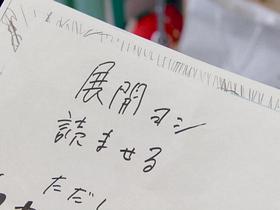 展開ヨシ
読ませる
ただし